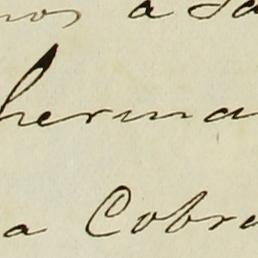 nos a sa
herma
a Cobra